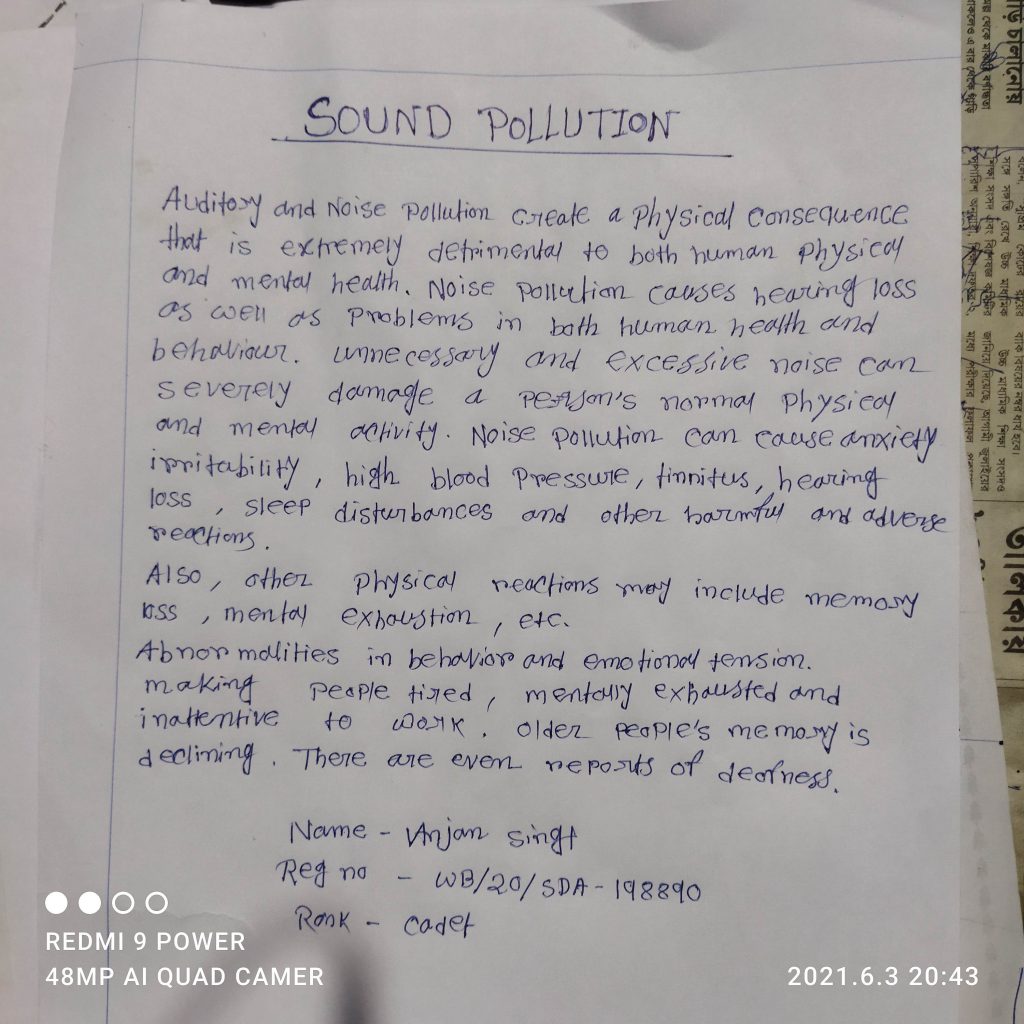 SOUND POLLUTION
Auditory and Noise Pollution create a Physical Consequence
that is extremely detrimental to both human physical
and mental health. Noise Pollution causes hearing loss
as well as Problems in both human health and
behaviour. unnecessary and excessive noise can
severely damage a person's normal Physical
and mental activity. Noise Pollution can cause anxiety
irritability, high blood Pressure, tinnitus, hearing
loss, sleep disturbances and other harmful and adverse
reactions.
Also, other physical reactions may include memory
loss, mental exhaustion, etc.
Abnormalities in behavior and emotional tension.
making people tired, mentally exhausted and
inattentive to work. Older people's memory is
declining. There are even reports of deafness.
Name - Anjan
Reg no - WB/20/SDA-198890
Rank - cadet
REDMI 9 POWER
48MP AI QUAD CAMER
2021.6.3 20:43